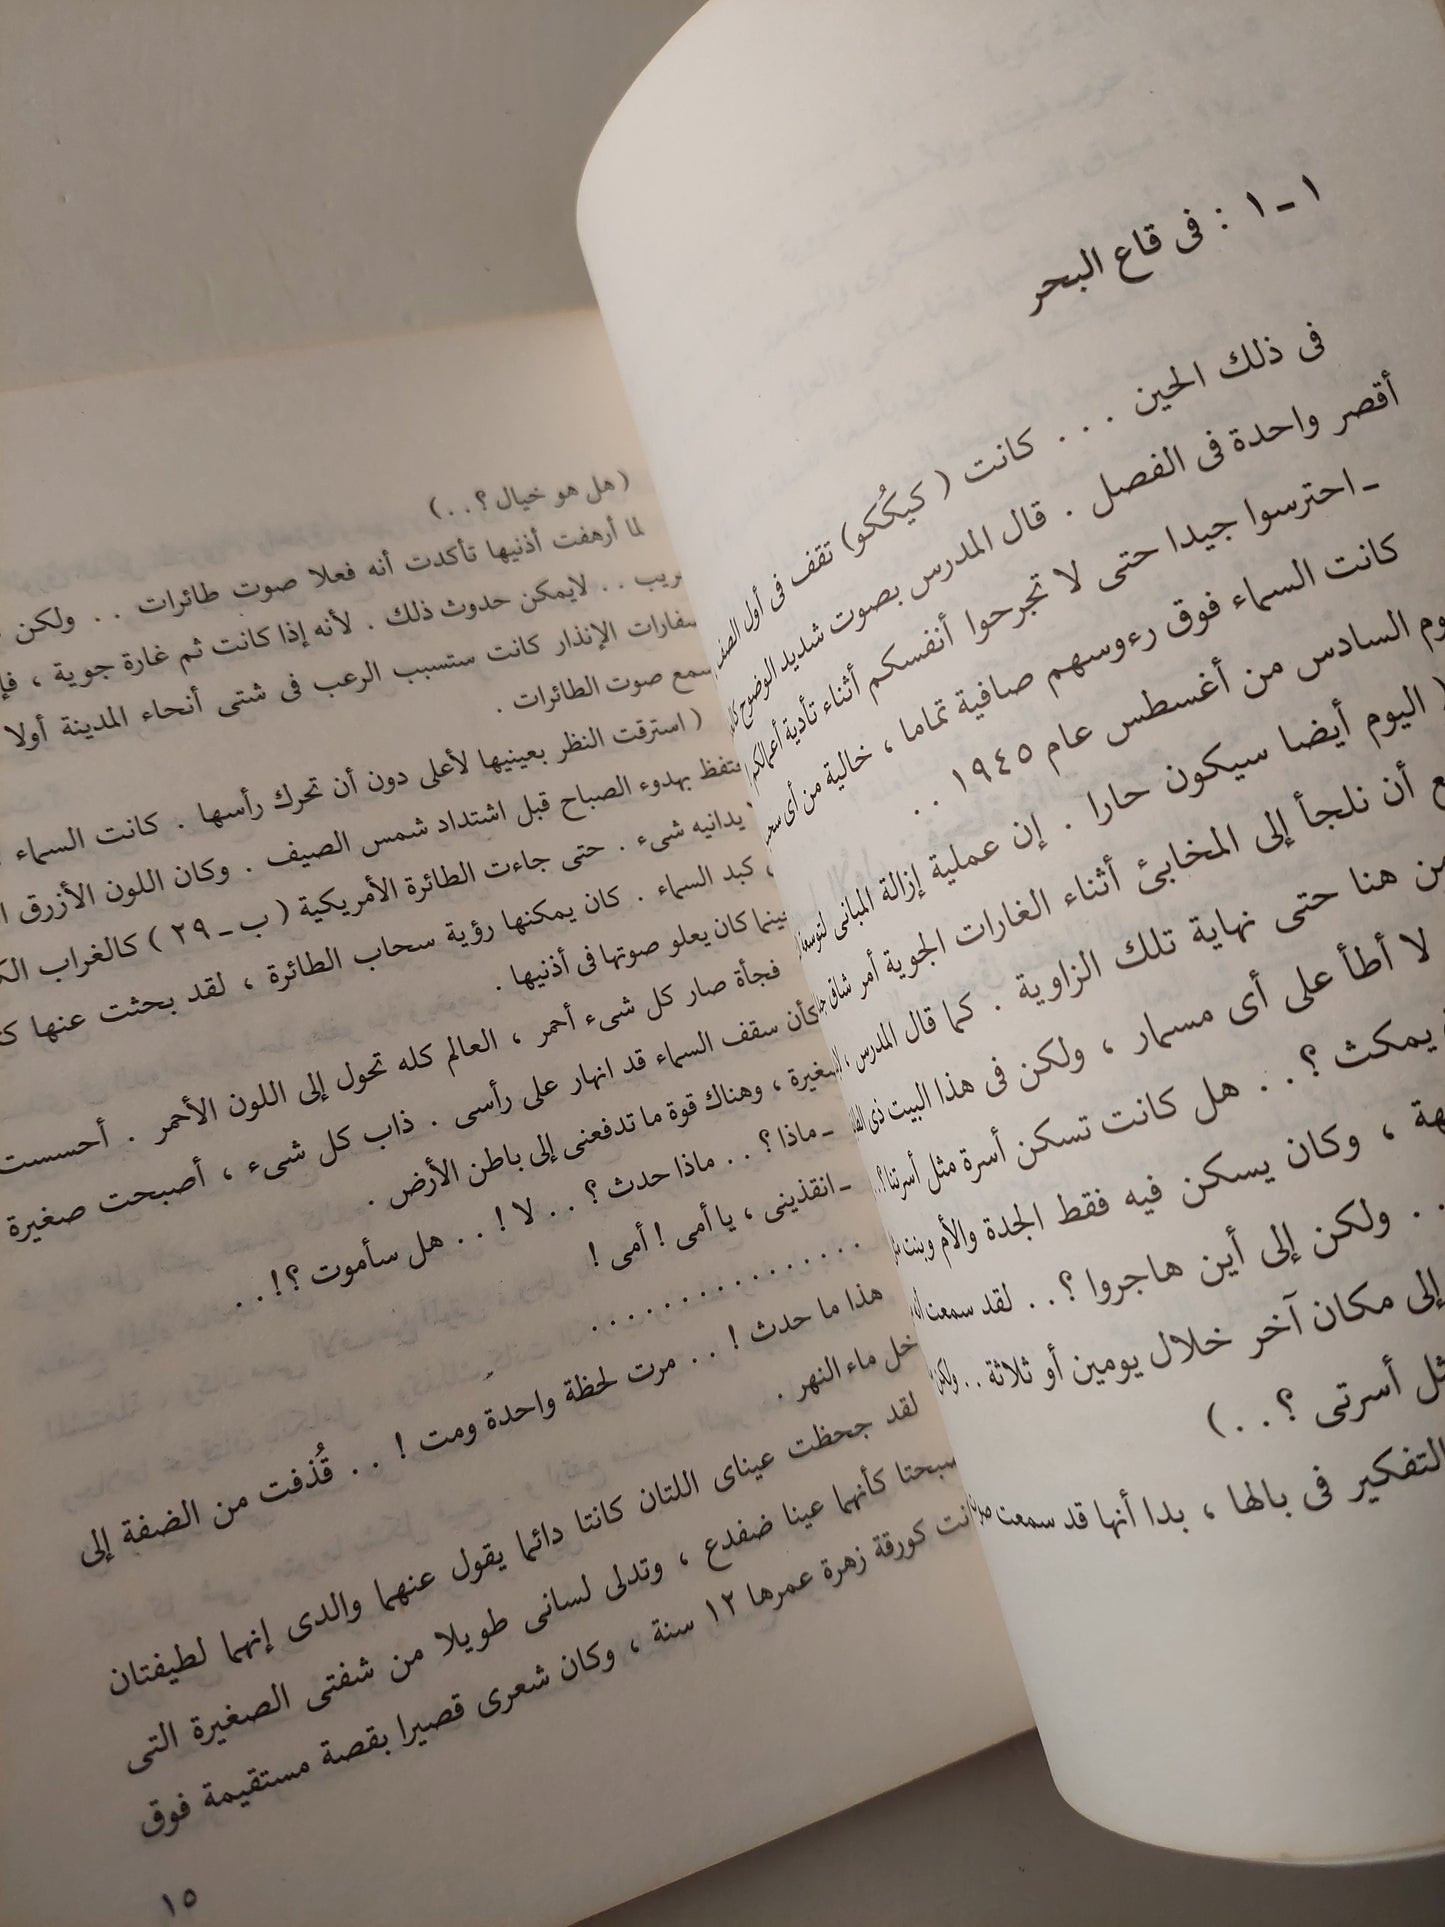 ١ - ١ : فى قاع البحر
فى ذلك الحين . . . كانت ( كيكُكو) تقف فى أول الصف
أقصر واحدة فى الفصل . قال المدرس بصوت شديد الوضوح
ـ احترسوا جيدا حتى لا تجرحوا أنفسكم أثناء تأدية أعمالكم
كانت السماء فوق رءوسهم صافية تماما ، خالية من أى
السادس من أغسطس عام ١٩٤٥ . .
( اليوم أيضا سيكون حارا . إن عملية إزالة المبانى
أن نلجأ إلى المخابئ أثناء الغارات الجوية أمر شاق
من هنا حتى نهاية تلك الزاوية . كما قال المدرس ،
لا أطأ على أى مسمار ، ولكن فى هذا البيت ذى
يمكث ؟ . . هل كانت تسكن أسرة مثل أسرتنا؟ . .
، وكان يسكن فيه فقط الجدة والأم وبنت
. . ولكن إلى أين هاجروا ؟ . . لقد سمعت
إلى مكان آخر خلال يومين أو ثلاثة . . ولكن
أسرتى ؟ . . )
التفكير فى بالها ، بدا أنها قد سمعت
( هل هو خيال ؟ . . )
لما أرهفت أذنيها تأكدت أنه فعلا صوت طائرات . . ولكن
. . لايمكن حدوث ذلك . لأنه إذا كانت ثم غارة جوية ،
الإنذار كانت ستسبب الرعب فى شتى أنحاء المدينة أولا
صوت الطائرات .
( استرقت النظر بعينيها لأعلى دون أن تحرك رأسها . كانت السماء
بهدوء الصباح قبل اشتداد شمس الصيف . وكان اللون الأزرق
يدانيه شىء . حتى جاءت الطائرة الأمريكية ( ب ـ ٢٩ ) كالغراب
كبد السماء . كان يمكنها رؤية سحاب الطائرة ، لقد بحثت عنها
كان يعلو صوتها فى أذنيها .
فجأة صار كل شىء أحمر ، العالم كله تحول إلى اللون الأحمر . أحسست
كأن سقف السماء قد انهار على رأسى . ذاب كل شىء ، أصبحت صغيرة
، وهناك قوة ما تدفعنى إلى باطن الأرض .
ـ ماذا ؟ . . ماذا حدث ؟ . . لا ! . . هل سأموت ؟ ! . .
ـ انقذينى ، يا أمى ! أمى !
. . . . . . . . . . . . . .
هذا ما حدث ! . . مرت لحظة واحدة ومت ! . . قُذفت من الضفة إلى
ماء النهر .
لقد جحظت عيناى اللتان كانتا دائما يقول عنهما والدى إنهما لطيفتان
كأنهما عينا ضفدع ، وتدلى لسانى طويلا من شفتى الصغيرة التى
كورقة زهرة عمرها ١٢ سنة ، وكان شعرى قصيرا بقصة مستقيمة فوق
١٥